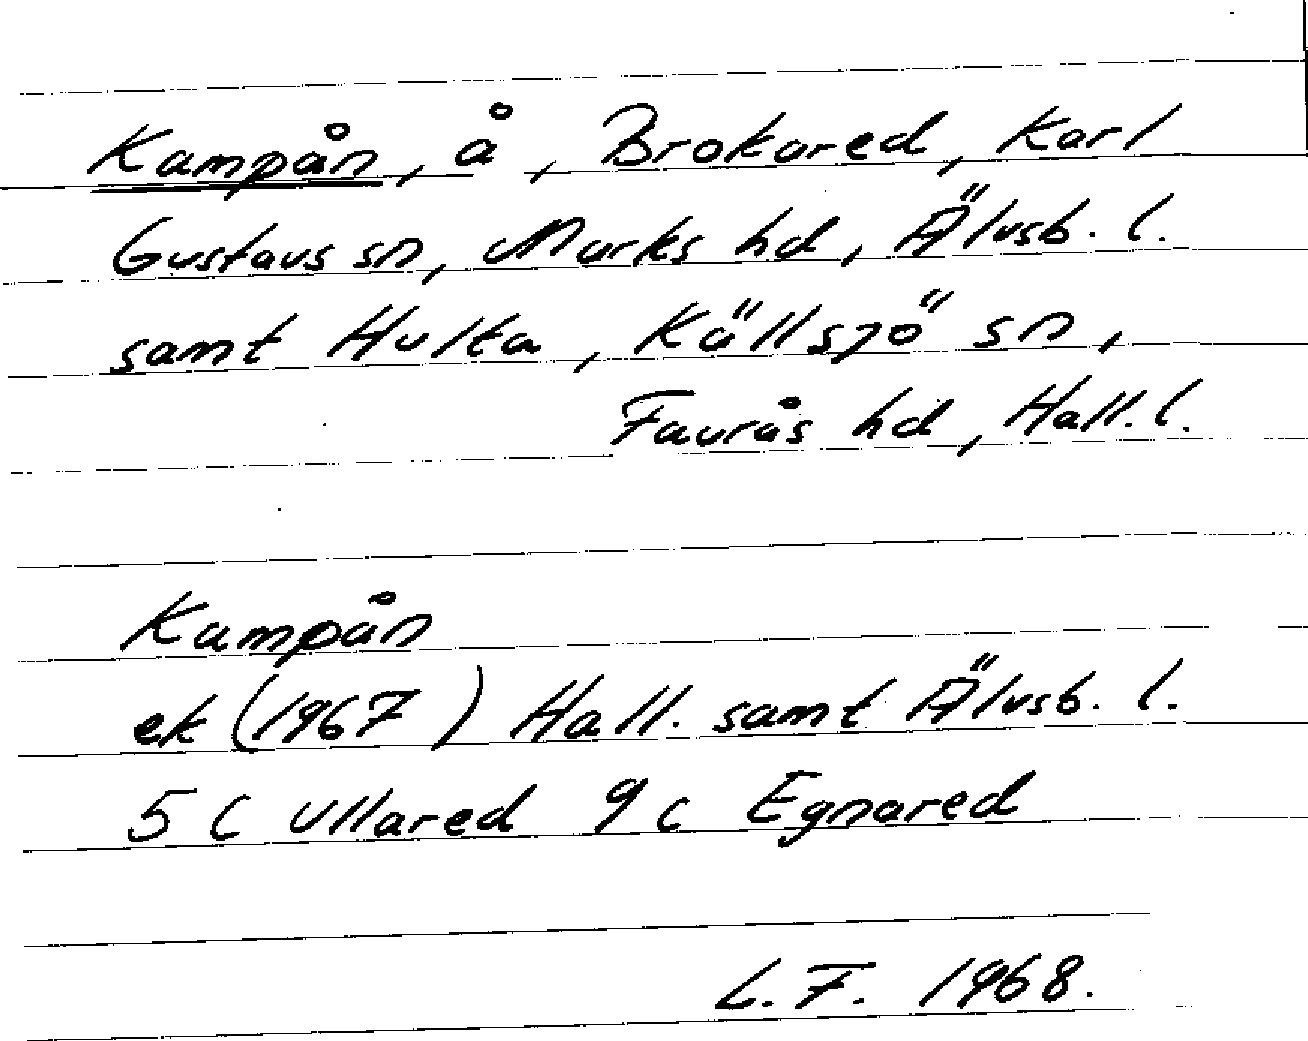 Kampån, å, Brokared, Karl
Gustavs sn, Marks hd, Älvsb. l.
samt Hulta, Källsjö sn,
Faurås hd, Hall. l.
Kampån
ek (1967) Hall. samt Älvsb. l.
5 C Ullared 9 c Egnared
L. F. 1968.